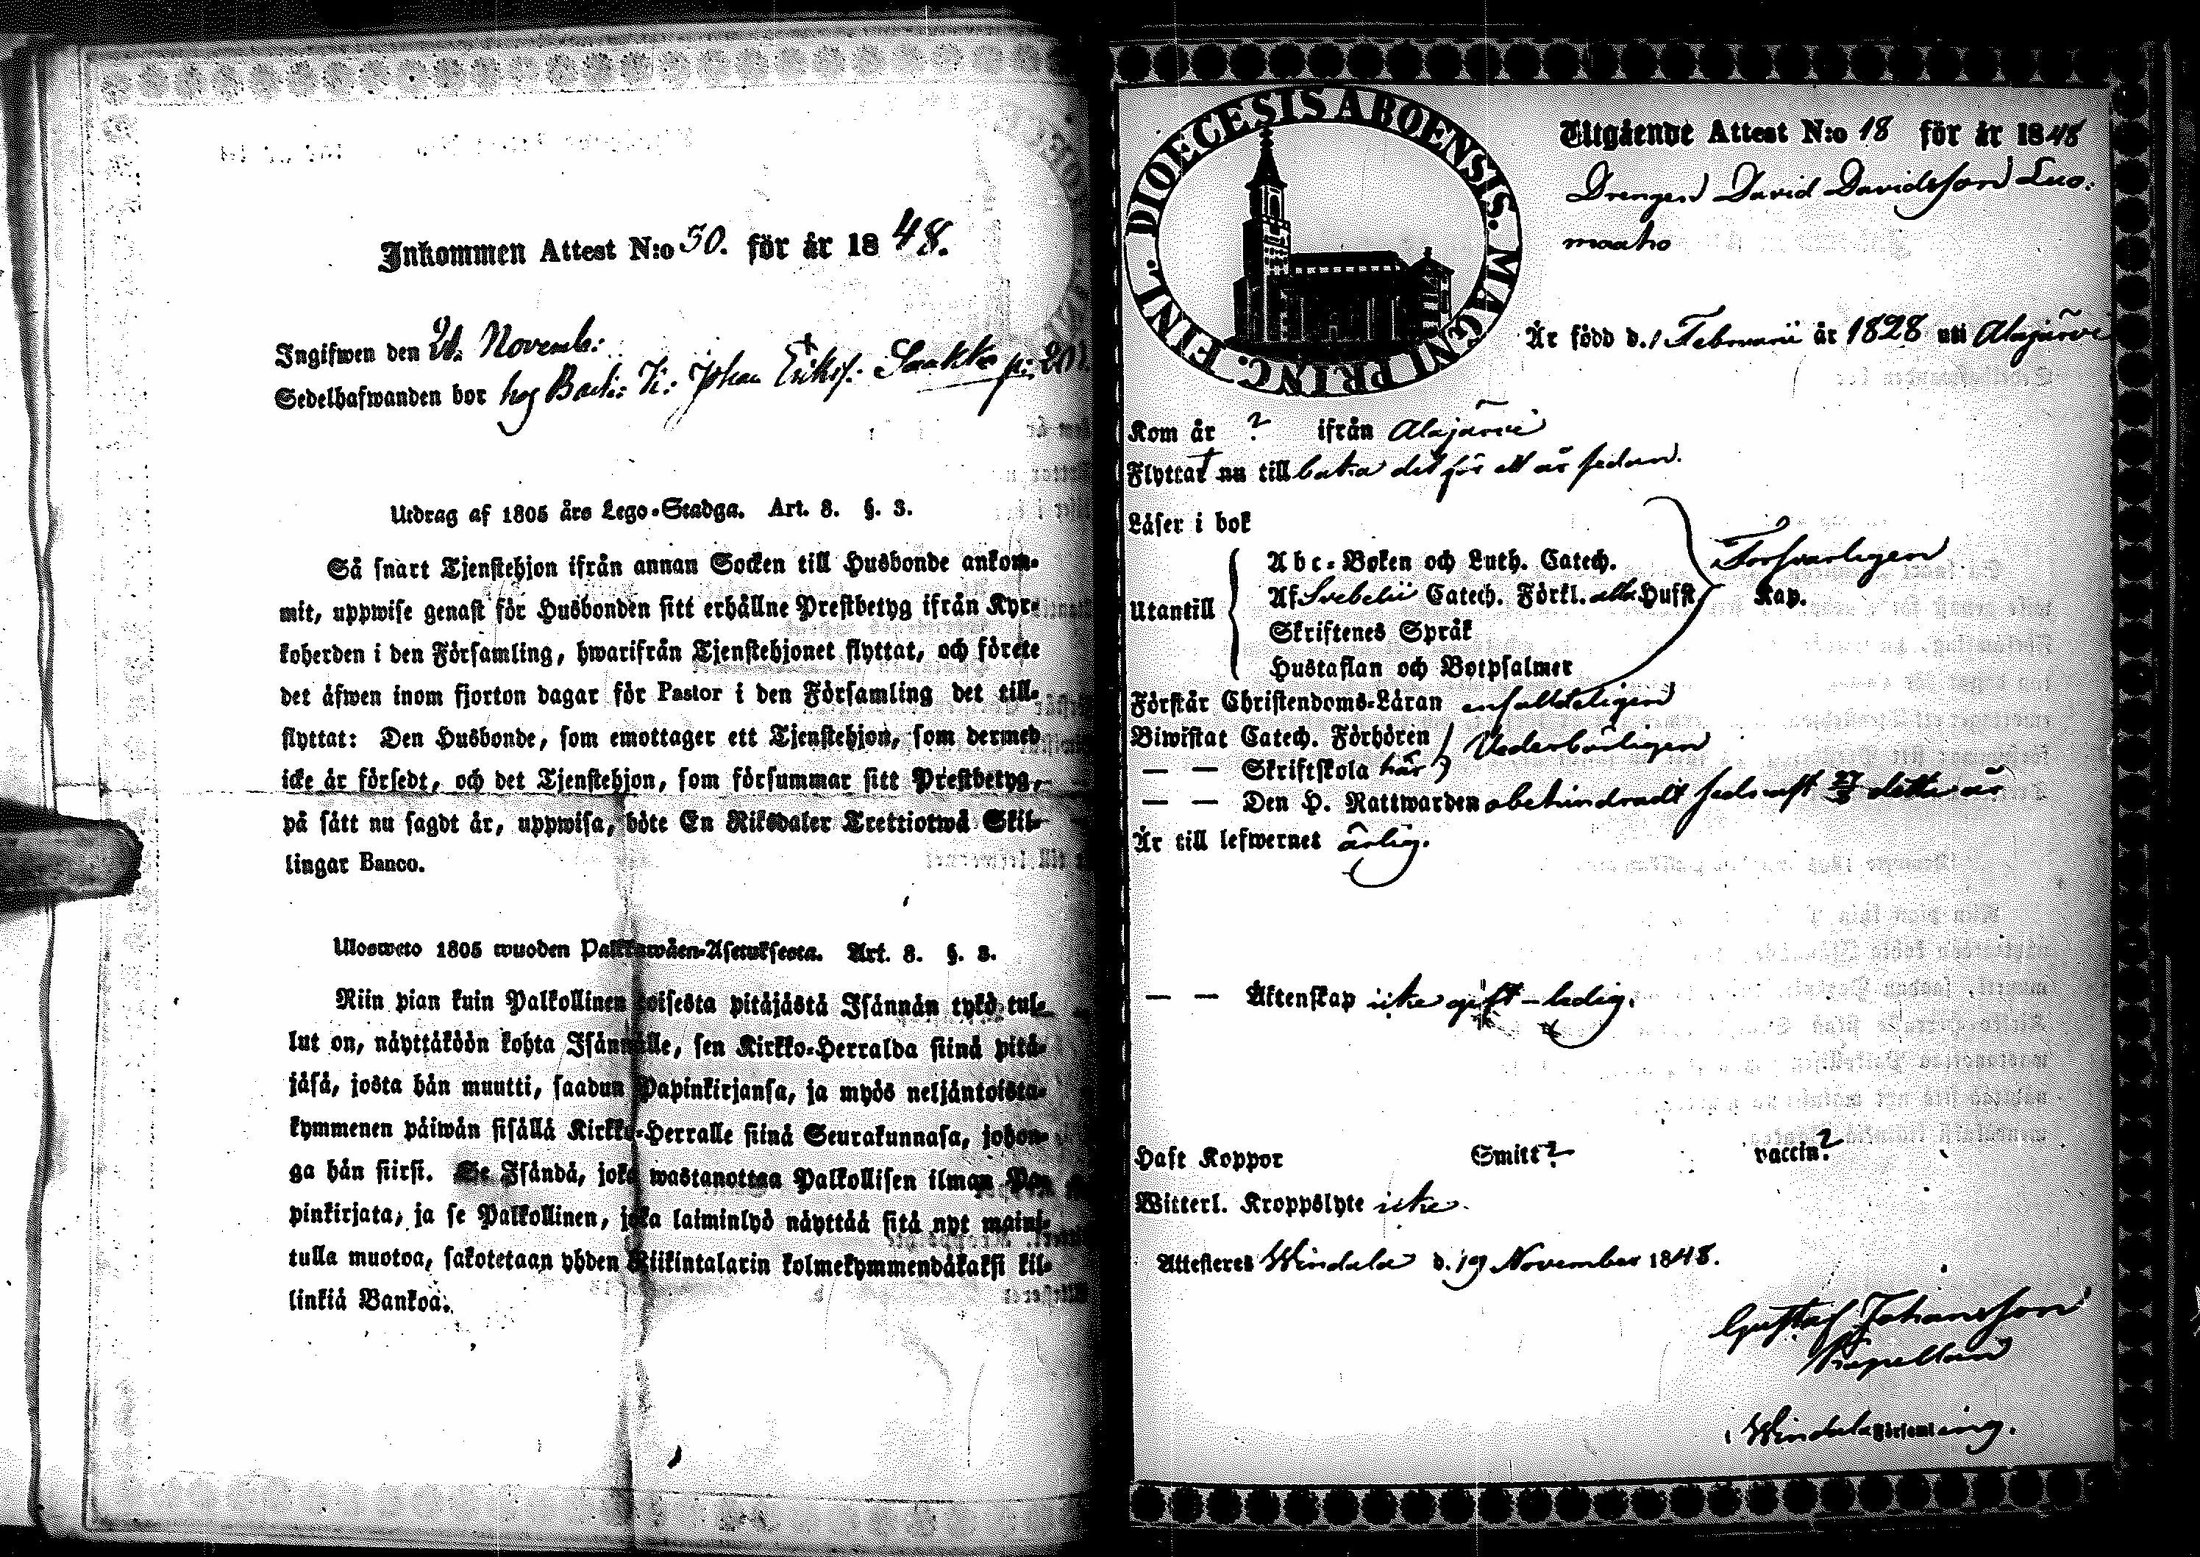 Inkommen Attest N:o 50. för år 1848.
Ingifwen den 21. Novemb:
Sedelhafwanden bor hos Johan Eriks:
Utdrag af 1805 års Lego-Stadga. Art. 8. §. 3.
Så snart Tjenstehjon ifrån annan Socken till Husbonde ankom-
mit, uppwise genast för Husbonden sitt erhållne Prestbetyg ifrån Kyr-
koherden i den Församling, hwarifrån Tjenstehjonet flyttat, och förete
det äfwen inom fjorton dagar för Pastor i den Församling det till-
flyttat: Den Husbonde, som emottager ett Tjenstehjon, som dermed
icke är försedt, och det Tjenstehjon, som försummar sitt Prestbetyg,
på sätt nu sagdt är, uppwisa, böte En Riksdaler Trettiotwå Skil-
lingar Banco.
Ulosweto 1805 wuoden Palkkawäen-Asetuksesta. Art. 8. §. 3.
Niin pian kuin Palkollinen toisesta pitäjästä Isännän tykö tul-
lut on, näyttäköön kohta Isännälle, sen Kirkko-Herralda siinä pitä-
jäsä, josta hän muutti, saadun Papinkirjansa, ja myös neljäntoista-
kymmenen päiwän sisällä Kirkko-Herralle siinä Seurakunnasa, johon-
ga hän siirsi. Se Isändä, joka wastanottaa Palkollisen ilman Pa-
pinkirjata, ja se Palkollinen, joka laiminlyö näyttää sitä nyt maini-
tulla muotoa, sakotetaan yhden Riikintalarin kolmekymmendäkaksi kil-
linkiä Bankoa.
DIOECESIS ABOENSIS. MAGNI PRINC. FINL.
Utgående Attest N:o 18 för år 1848
Drengen David Davidsson Luo-
maaho
Är född d. 1 Februarii år 1828 uti Alajärvi
Kom år ? ifrån Alajärvi
Flyttat nu tillbaka det för ett år sedan.
Läser i bok
Abc-Boken och Luth. Catech. Försvarligen
Utantill Af Svebelii Catech. Förkl. alla Hufst Kap.
Skriftenes Språk
Hustaflan och Botpsalmer
Förstår Christendoms-Läran enfalldeligen
Biwistat Catech. Förhören Vederbörligen
— — Skriftskola här
— — Den H. Nattwarden obehindradt sednast 27/8 detta år
Är till lefwernet ärlig.
— — Äktenskap icke gift – ledig.
Haft Koppor Smitt? vaccin?
Witterl. Kroppslyte icke.
Attesteres Windala d. 19 November 1848.
Gustaf Johansson
Kapellan
i Windala Församling.